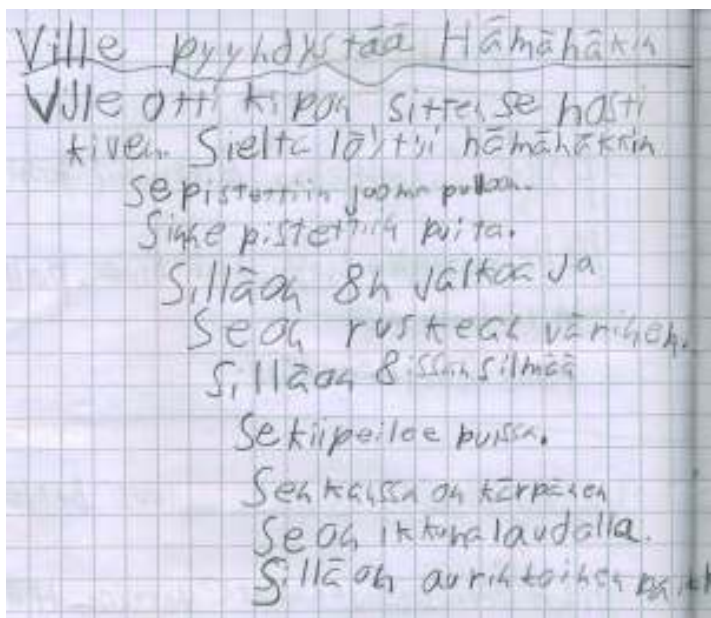 Ville pyyhdystää Hämähäkin
Ville otti kipon sitten se nosti
kiven. Sieltä löytyi hämähäkkin
Se pistettiin juoma pulloon.
Sinne pistettiin puita.
Silläon 8n Jalkoa Ja
Seon ruskean värinen.
Silläon 8 issan silmää
Se kiipeilee puissa.
Sen kanssa on kärpänen
Seon ikkunalaudalla.
Sillä on aurinkoinen